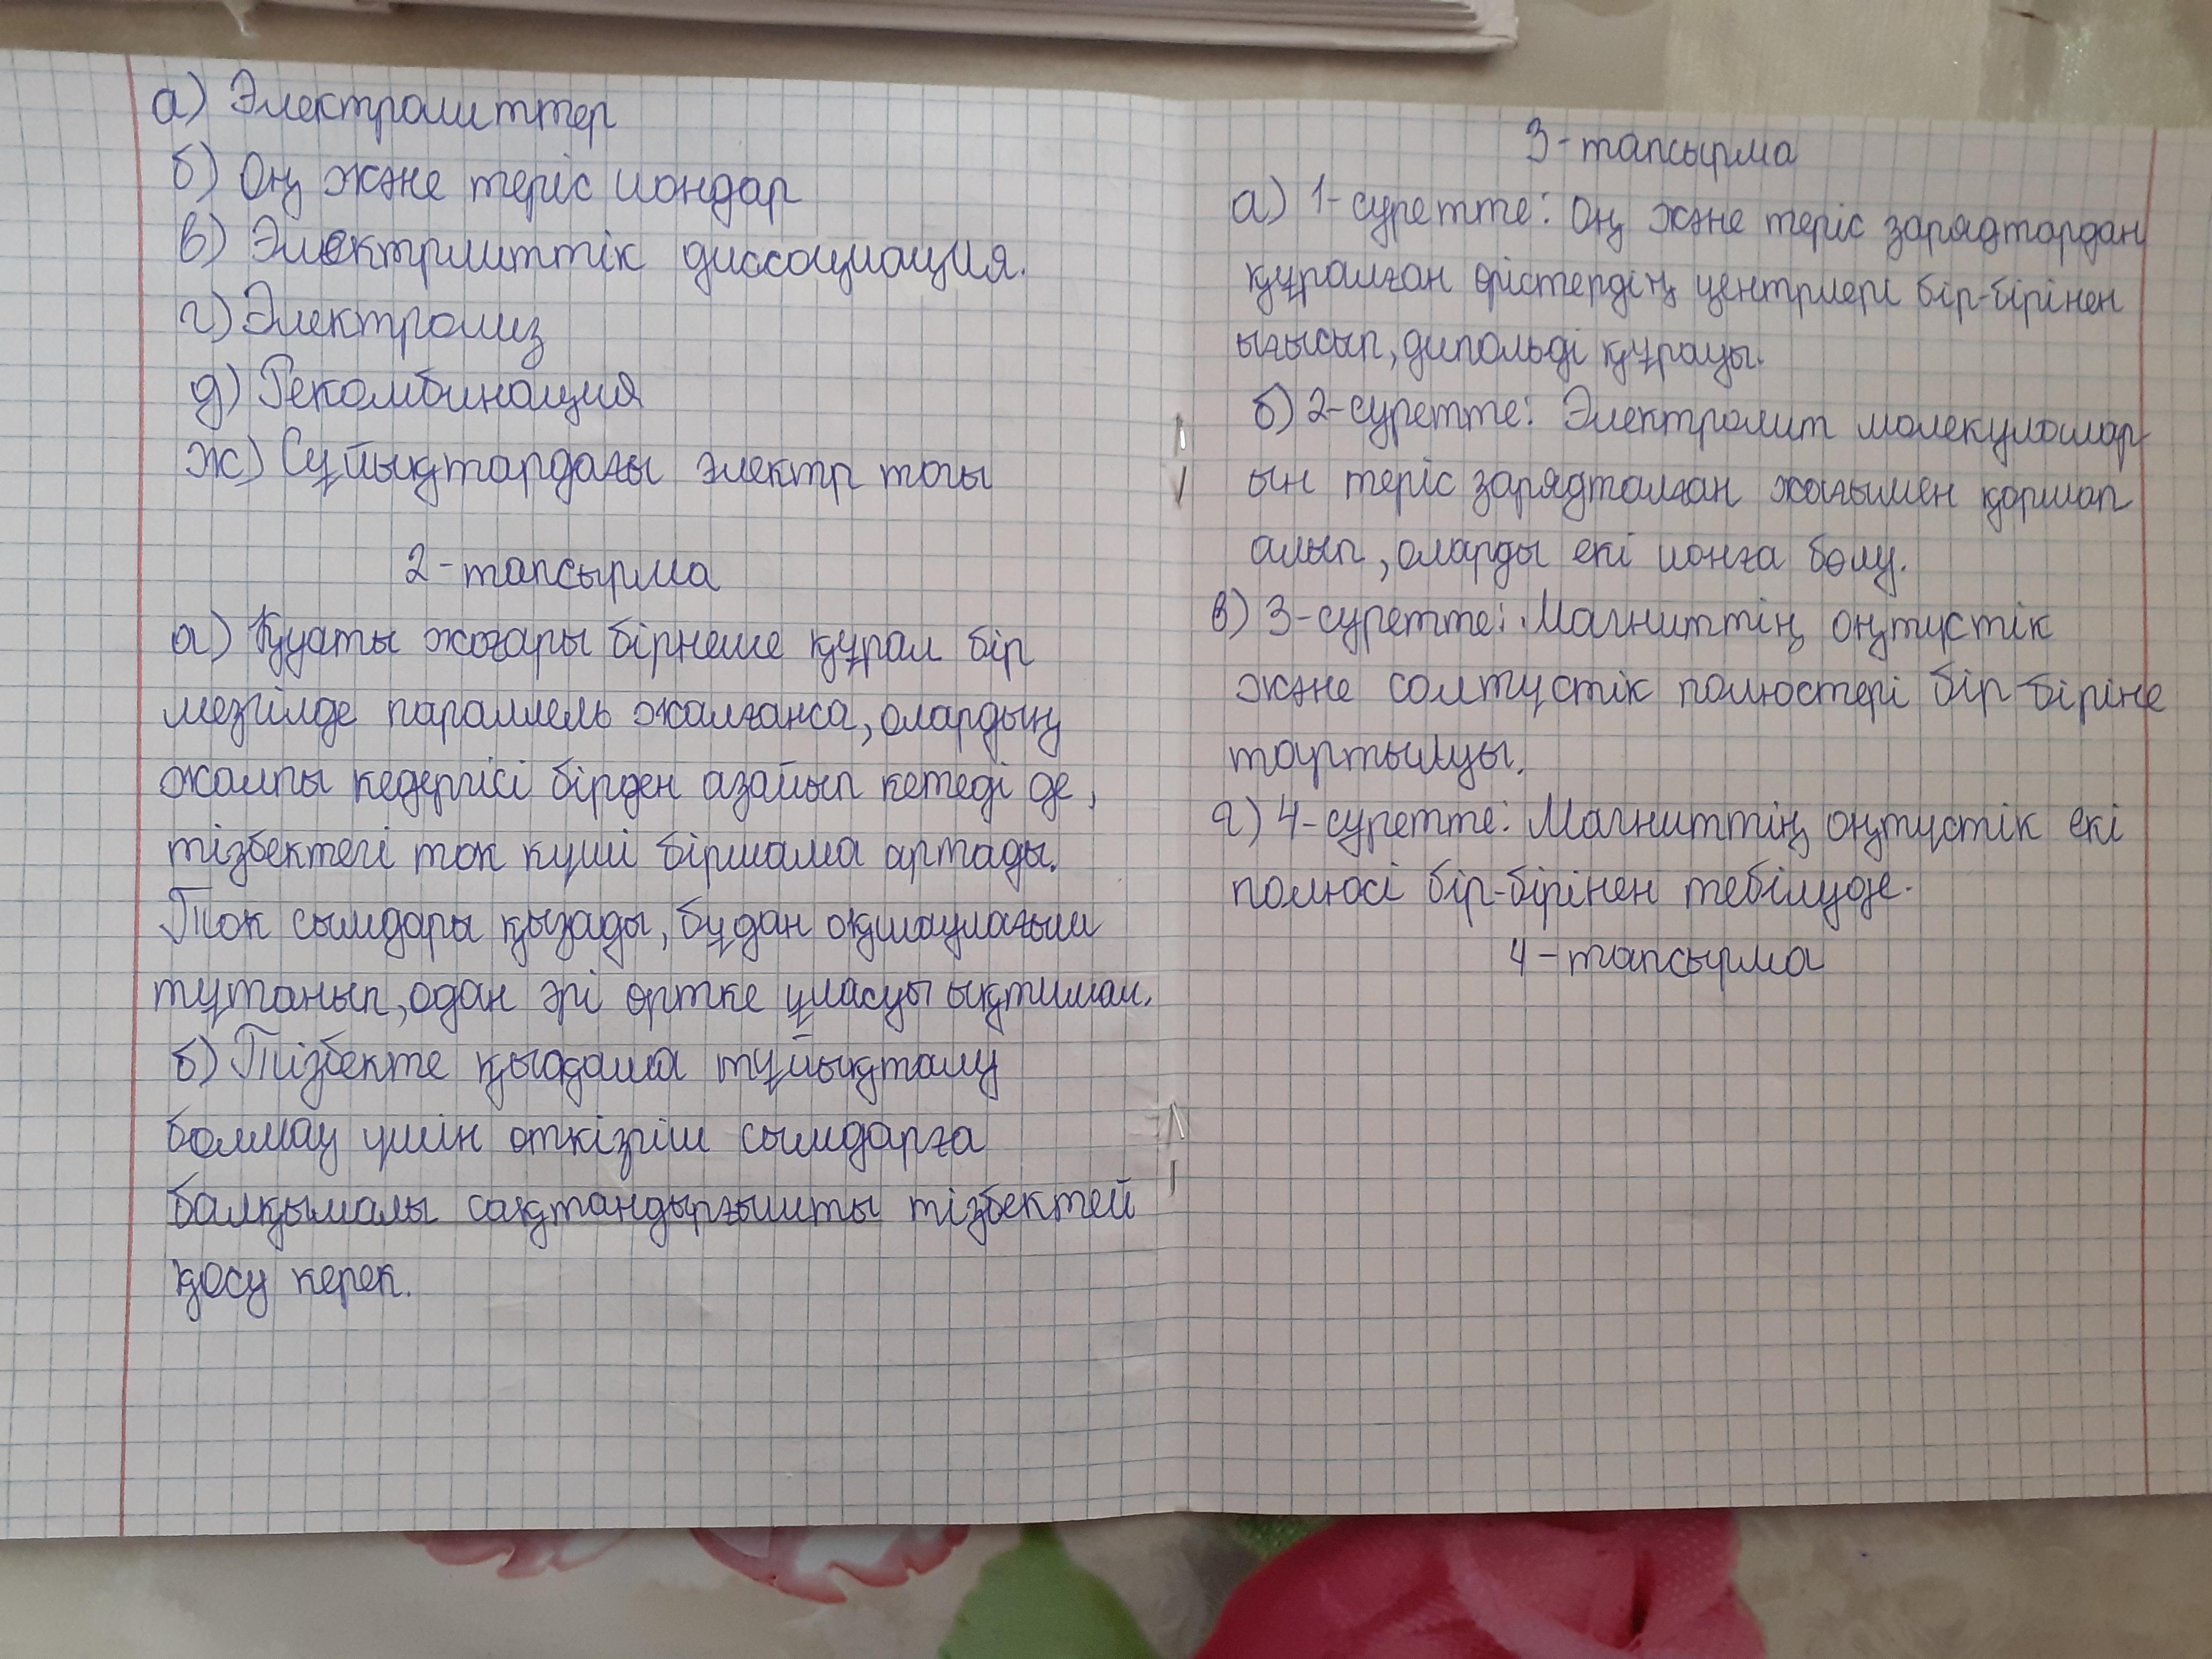 а) Электролиттер
б) Оң және теріс иондар
в) Электрлиттік диссоциация.
г) Электролиз
д) Рекомбинация
ж) Сұйықтардағы электр тогы
2-тапсырма
а) Қуаты жоғары бірнеше құрал бір
мезгілде параллель жалғанса, олардың
жалпы кедергісі бірден азайып кетеді де,
тізбектегі ток күші біршама артады.
Ток сымдары қызады, бұдан оқшаулағыш
тұтанып, одан әрі өртке ұласуы ықтимал.
б) Тізбекте қысқаша тұйықталу
болмау үшін өткізгіш сымдарға
балқымалы сақтандырғышты тізбектей
қосу керек.
3-тапсырма
а) 1-суретте: Оң және теріс зарядтардан
құралған өрістердің центрлері бір-бірінен
ығысып, дипольді құрауы.
б) 2-суретте: Электролит молекулалар-
ын теріс зарядталған жағымен қоршап
алып, оларды екі ионға бөлу.
в) 3-суретте: Магниттің оңтүстік
және солтүстік полюстері бір-біріне
тартылуы.
г) 4-суретте: Магниттің оңтүстік екі
полюсі бір-бірінен тебілуде.
4-тапсырма